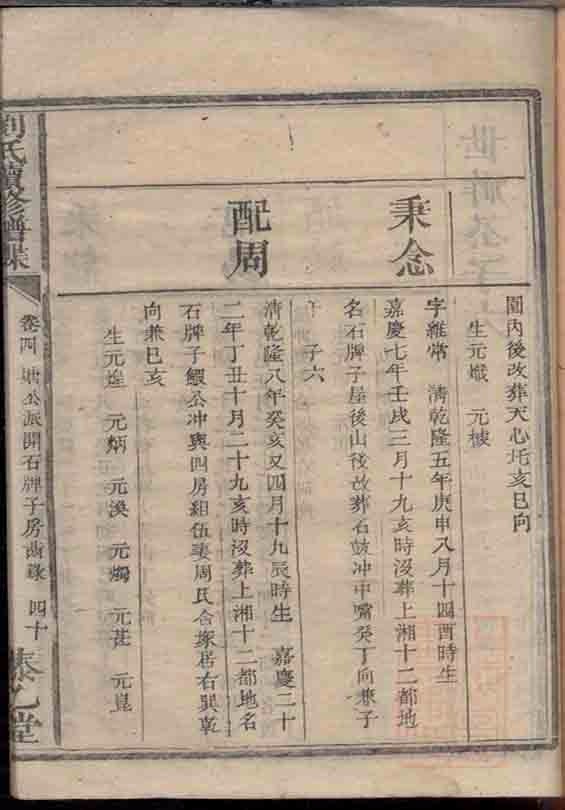 園內後改葬天心圫亥巳向
生元孅 元棣
秉念
字維常 清乾隆五年庚申八月十四酉時生
嘉慶七年壬戌三月十九亥時沒葬上湘十二都地
名石牌子屋後山後改葬石鼓冲中嘴癸丁向兼子
午 子六
配周
清乾隆八年癸亥又四月十九辰時生 嘉慶二十
二年丁丑十月二十九亥時沒葬上湘十二都地名
石牌子鰕公冲與四房組伍妻周氏合塚居右巽乾
向兼巳亥
生元煌 元炳 元渙 元燭 元茌 元崑
劉氏續修譜牒
卷四 塘公派開石牌子房齒錄 四十
泰乙堂